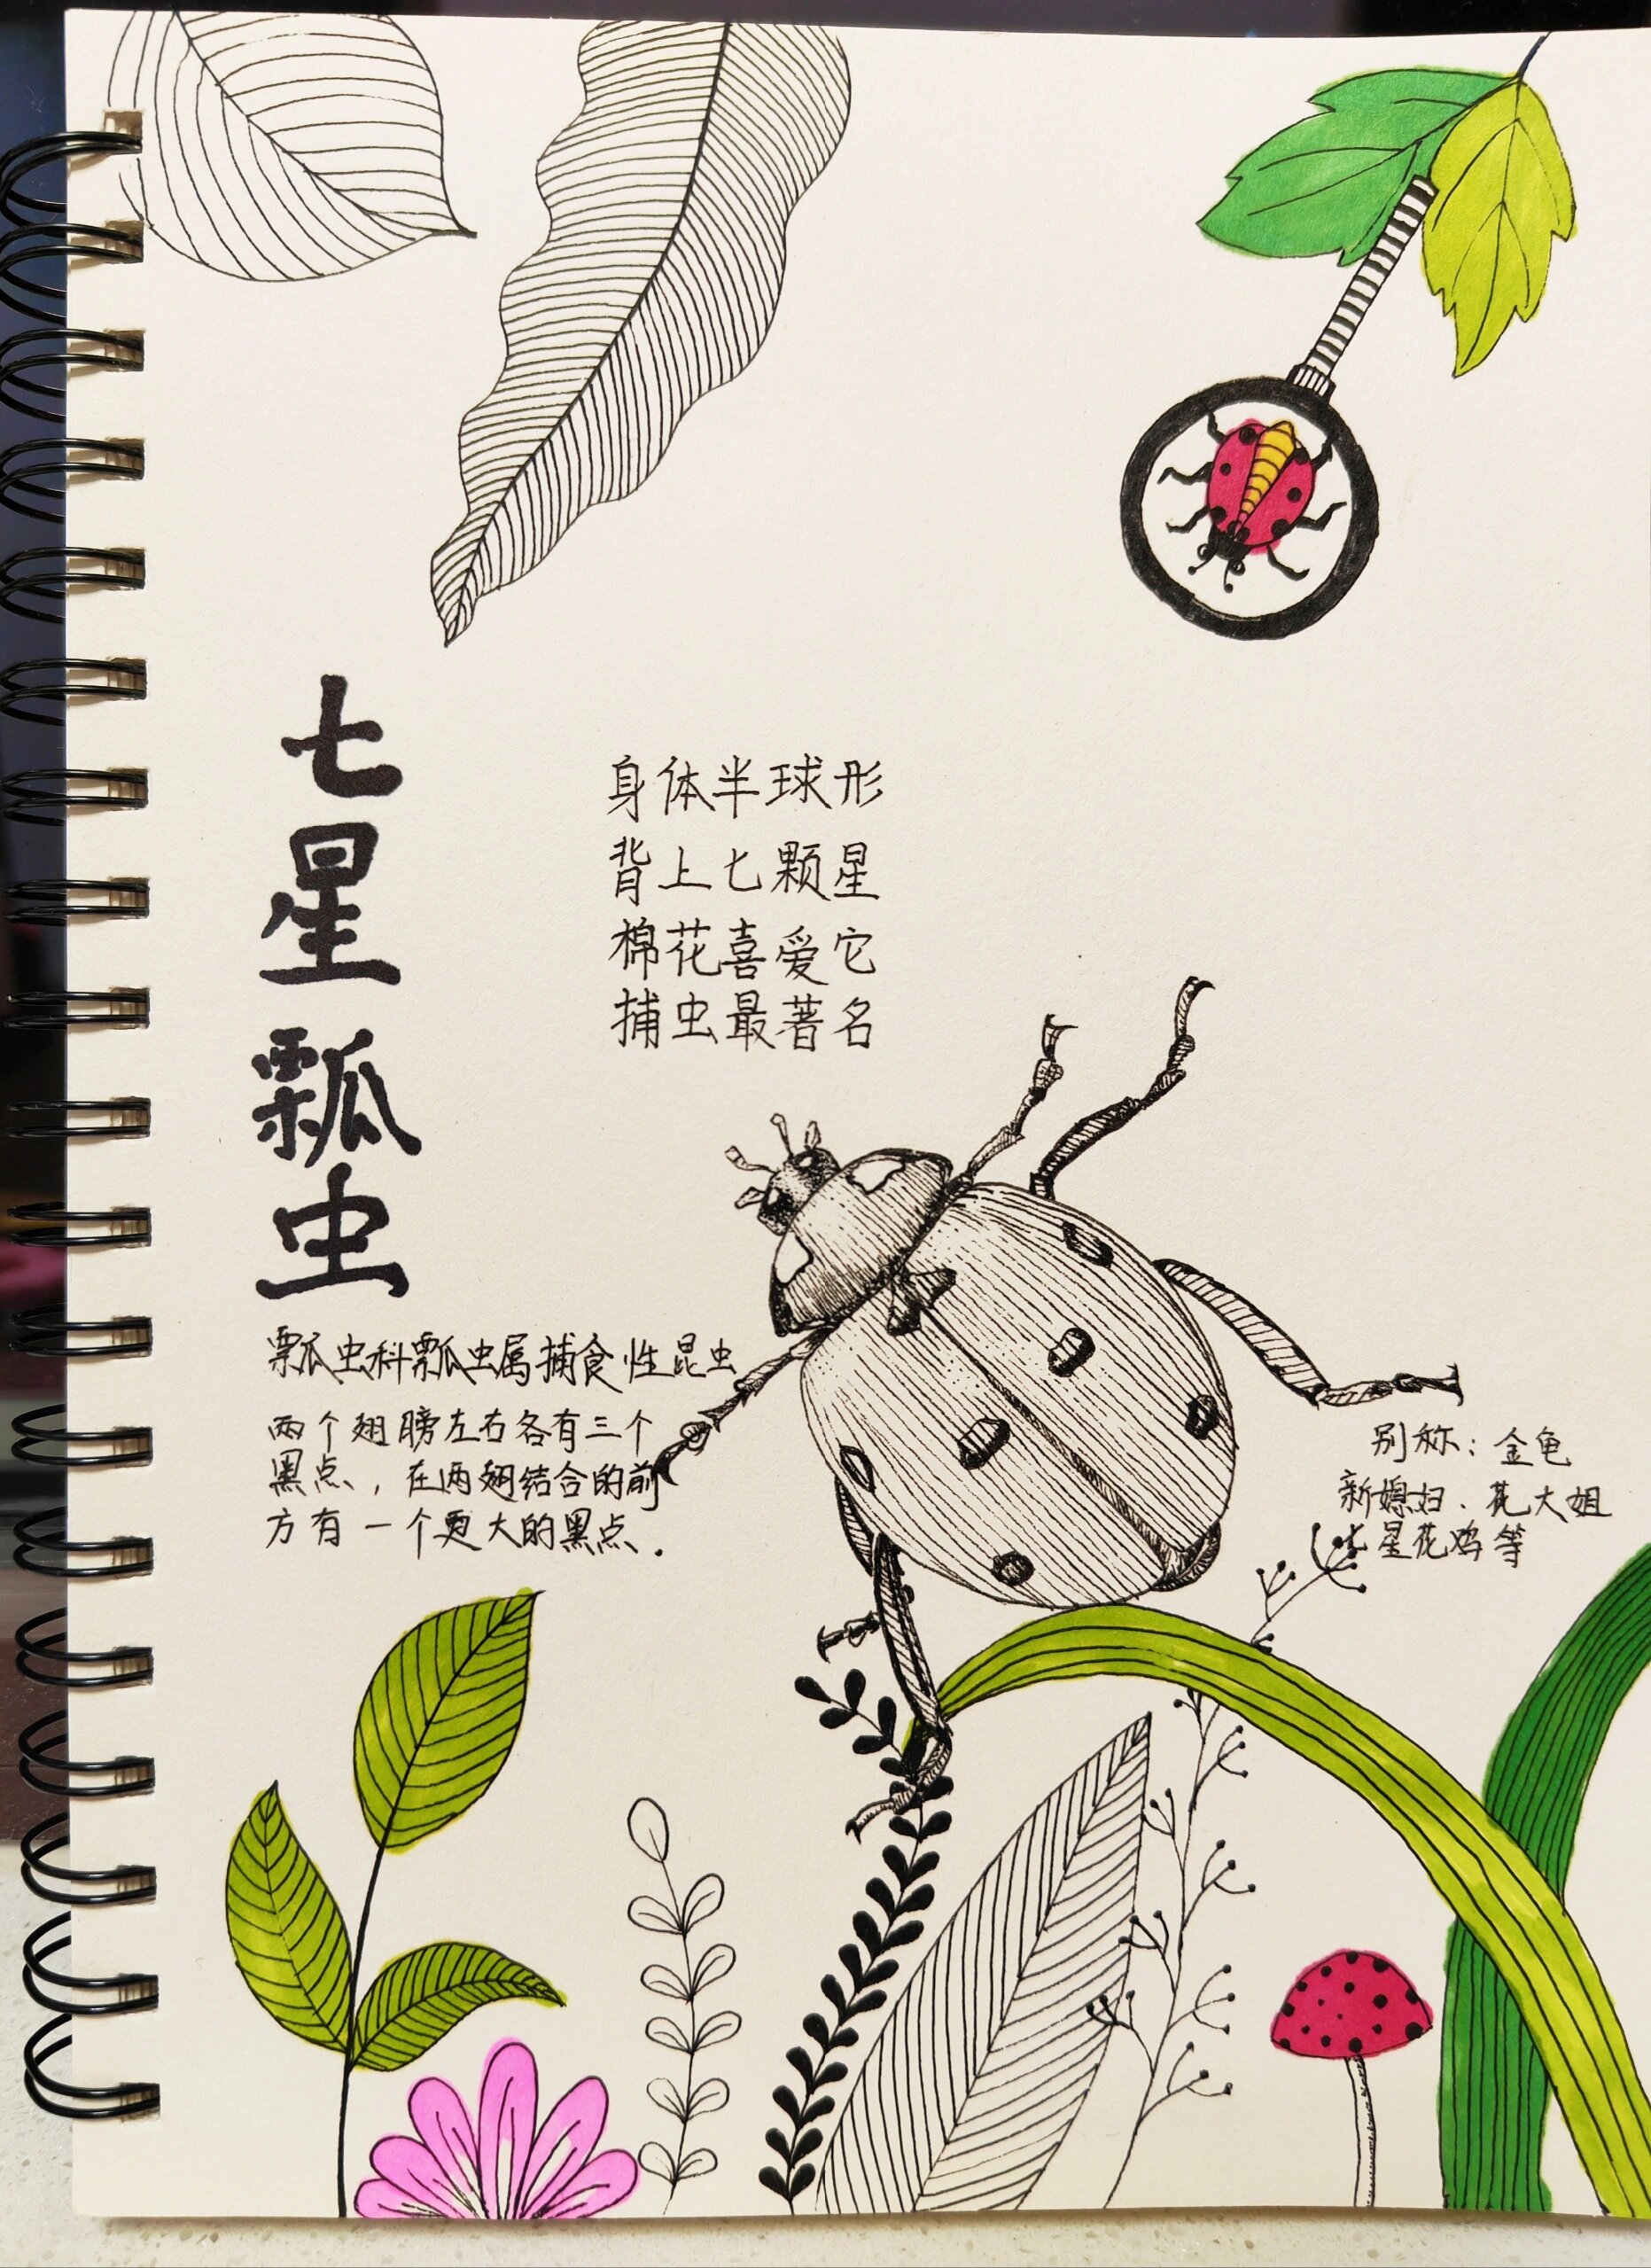 七星瓢虫
身体半球形
背上七颗星
棉花喜爱它
捕虫最著名
瓢虫科瓢虫属捕食性昆虫
两个翅膀左右各有三个
黑点，在两翅结合的前
方有一个更大的黑点.
别称：金龟
新媳妇、花大姐
七星花鸡等